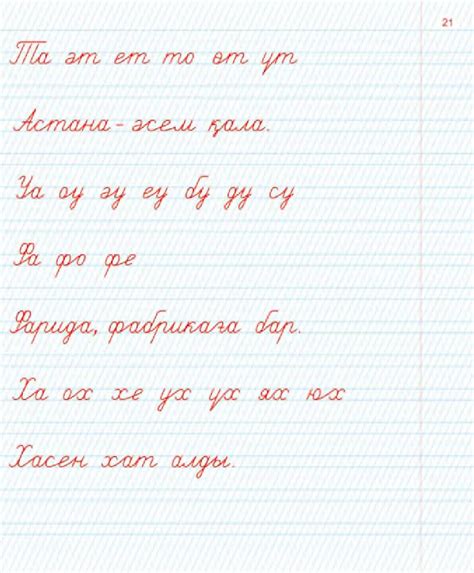 21
Та әт ет то өт ут
Астана - әсем қала.
Уа оу әу еу бу ду су
Фа фо фе
Фарида, фабрикаға бар.
Ха ох хе ух үх ях юх
Хасен хат алды.